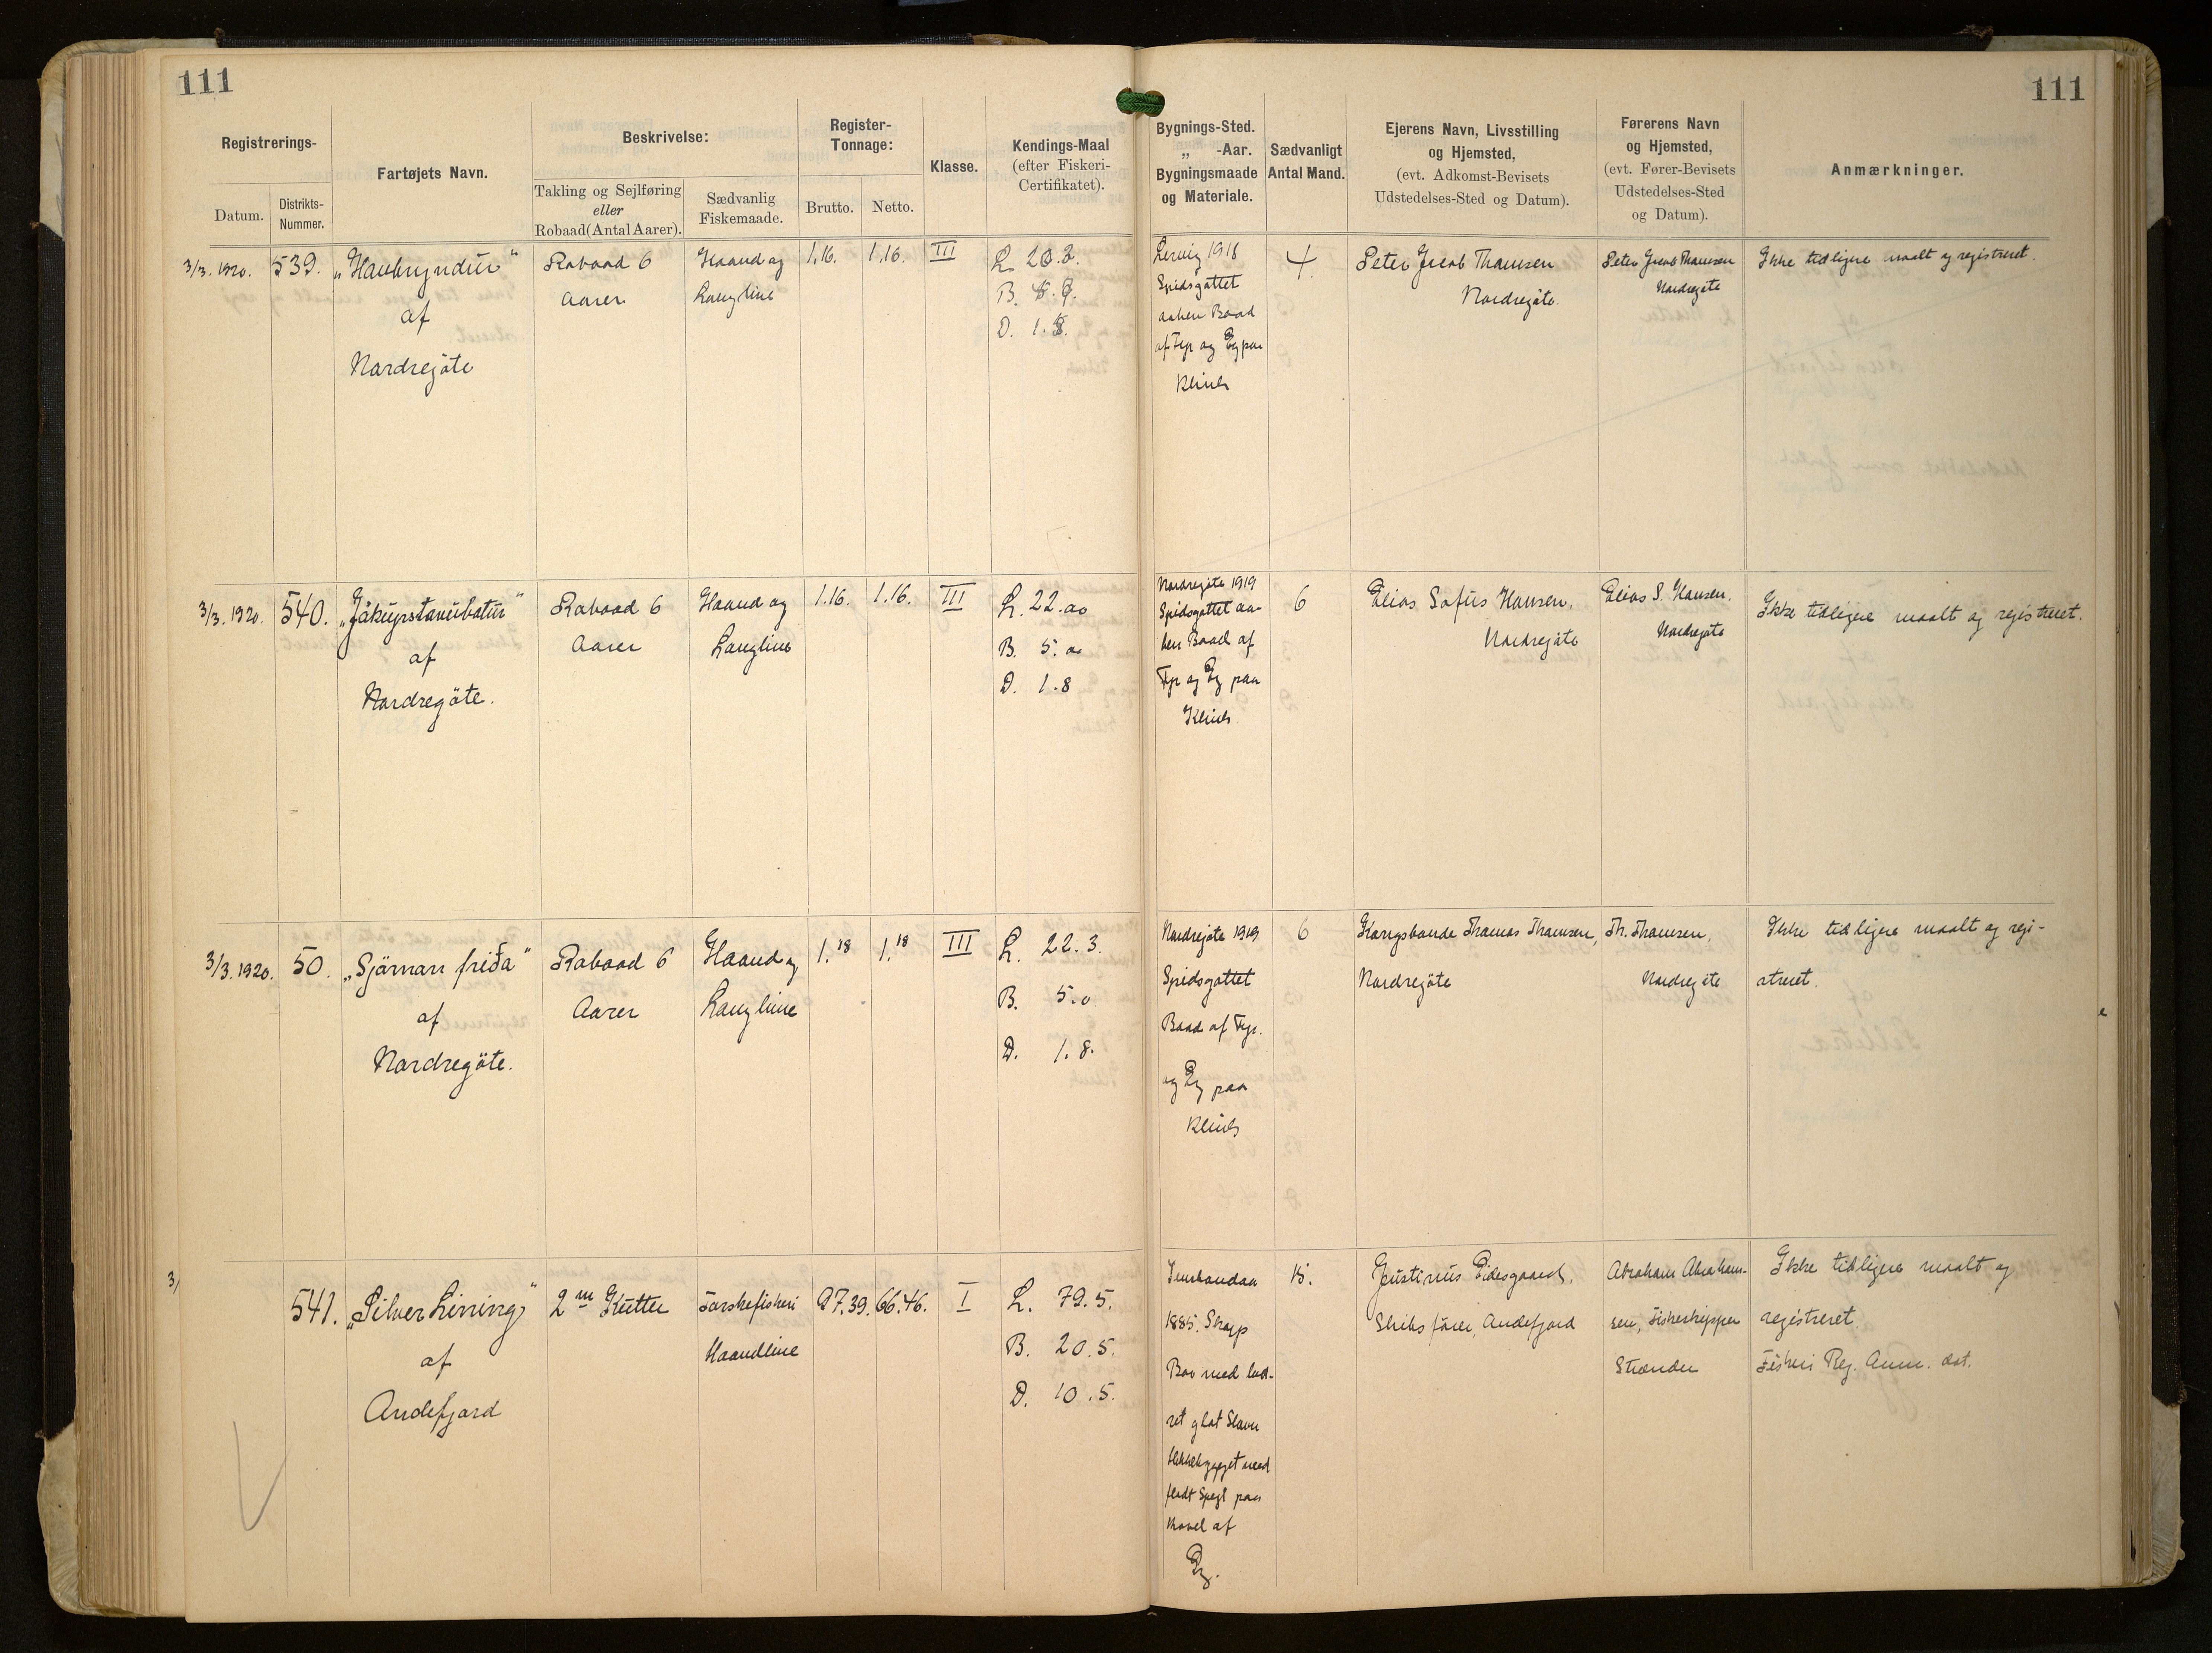 111
111
Registrerings-
Datum.
Distrikts-
Nummer.
Fartøjets Navn.
Beskrivelse:
Takling og Sejlføring
eller
Robaad (Antal Aarer).
Sædvanlig
Fiskemaade.
Register-
Tonnage:
Brutto.
Netto.
Klasse.
Kendings-Maal
(efter Fiskeri-
Certifikatet).
Bygnings-Sted.
„ -Aar.
Bygningsmaade
og Materiale.
Sædvanligt
Antal Mand.
Ejerens Navn, Livsstilling
og Hjemsted,
(evt. Adkomst-Bevisets
Udstedelses-Sted og Datum).
Førerens Navn
og Hjemsted,
(evt. Fører-Bevisets
Udstedelses-Sted
og Datum).
Anmærkninger.
3/3. 1920.
539.
af
Nordregöte
Robaad 6
Aarer
Haand og
Langline
1.16.
1.16.
III
L.
B.
D. 1.8.
Lervig 1918
Spidsgattet
aaben Baad
af Fyr og Eg paa
Klink
4
Peter Jacob Thomsen
Nordregöte
Peter Jacob Thomsen
Nordregöte
Ikke tidligere maalt og registreret.
3/3. 1920.
540.
af
Nordregöte.
Robaad 6
Aarer
Haand og
Langline
1.16.
1.16.
III
L. 22.00
B. 5.00
D. 1.8
Nordregöte 1919
Spidsgattet aa-
ben Baad af
Fyr og Eg paa
Klink
6
Elias Sofus Hansen,
Nordregöte
Elias S. Hansen.
Nordregöte
Ikke tidligere maalt og registreret.
3/3. 1920.
50.
„Sjörnan friða“
af
Nordregöte.
Robaad 6
Aarer
Haand og
Langline
1.18
1.18
III
L. 22.3.
B. 5.0
D. 1.8.
Nordregöte 1919
Spidsgattet
Baad af Fyr.
og Eg paa
Klink
6
Kongsbonde Thomas Thomsen,
Nordregöte
Th. Thomsen,
Nordregöte
Ikke tidligere maalt og regi-
streret.
3/
541.
„Silver Lining“
af
Andefjord
2 m Kutter
Torskefiskeri
Haandline
87.39.
66.46.
I
L. 79.5.
B. 20.5.
D. 10.5.
1885. Skarp
Bov med lod-
ret glat Stævn
Hækbygget med
fladt Spejl paa
Kravel af
Eg.
15.
Justinus Eidesgaard,
Skibsfører, Andefjord
Abraham Abraham-
sen, Fiskeskipper
Strænder
Ikke tidligere maalt og
registreret.
Fiskeri Reg. Anm. dat.